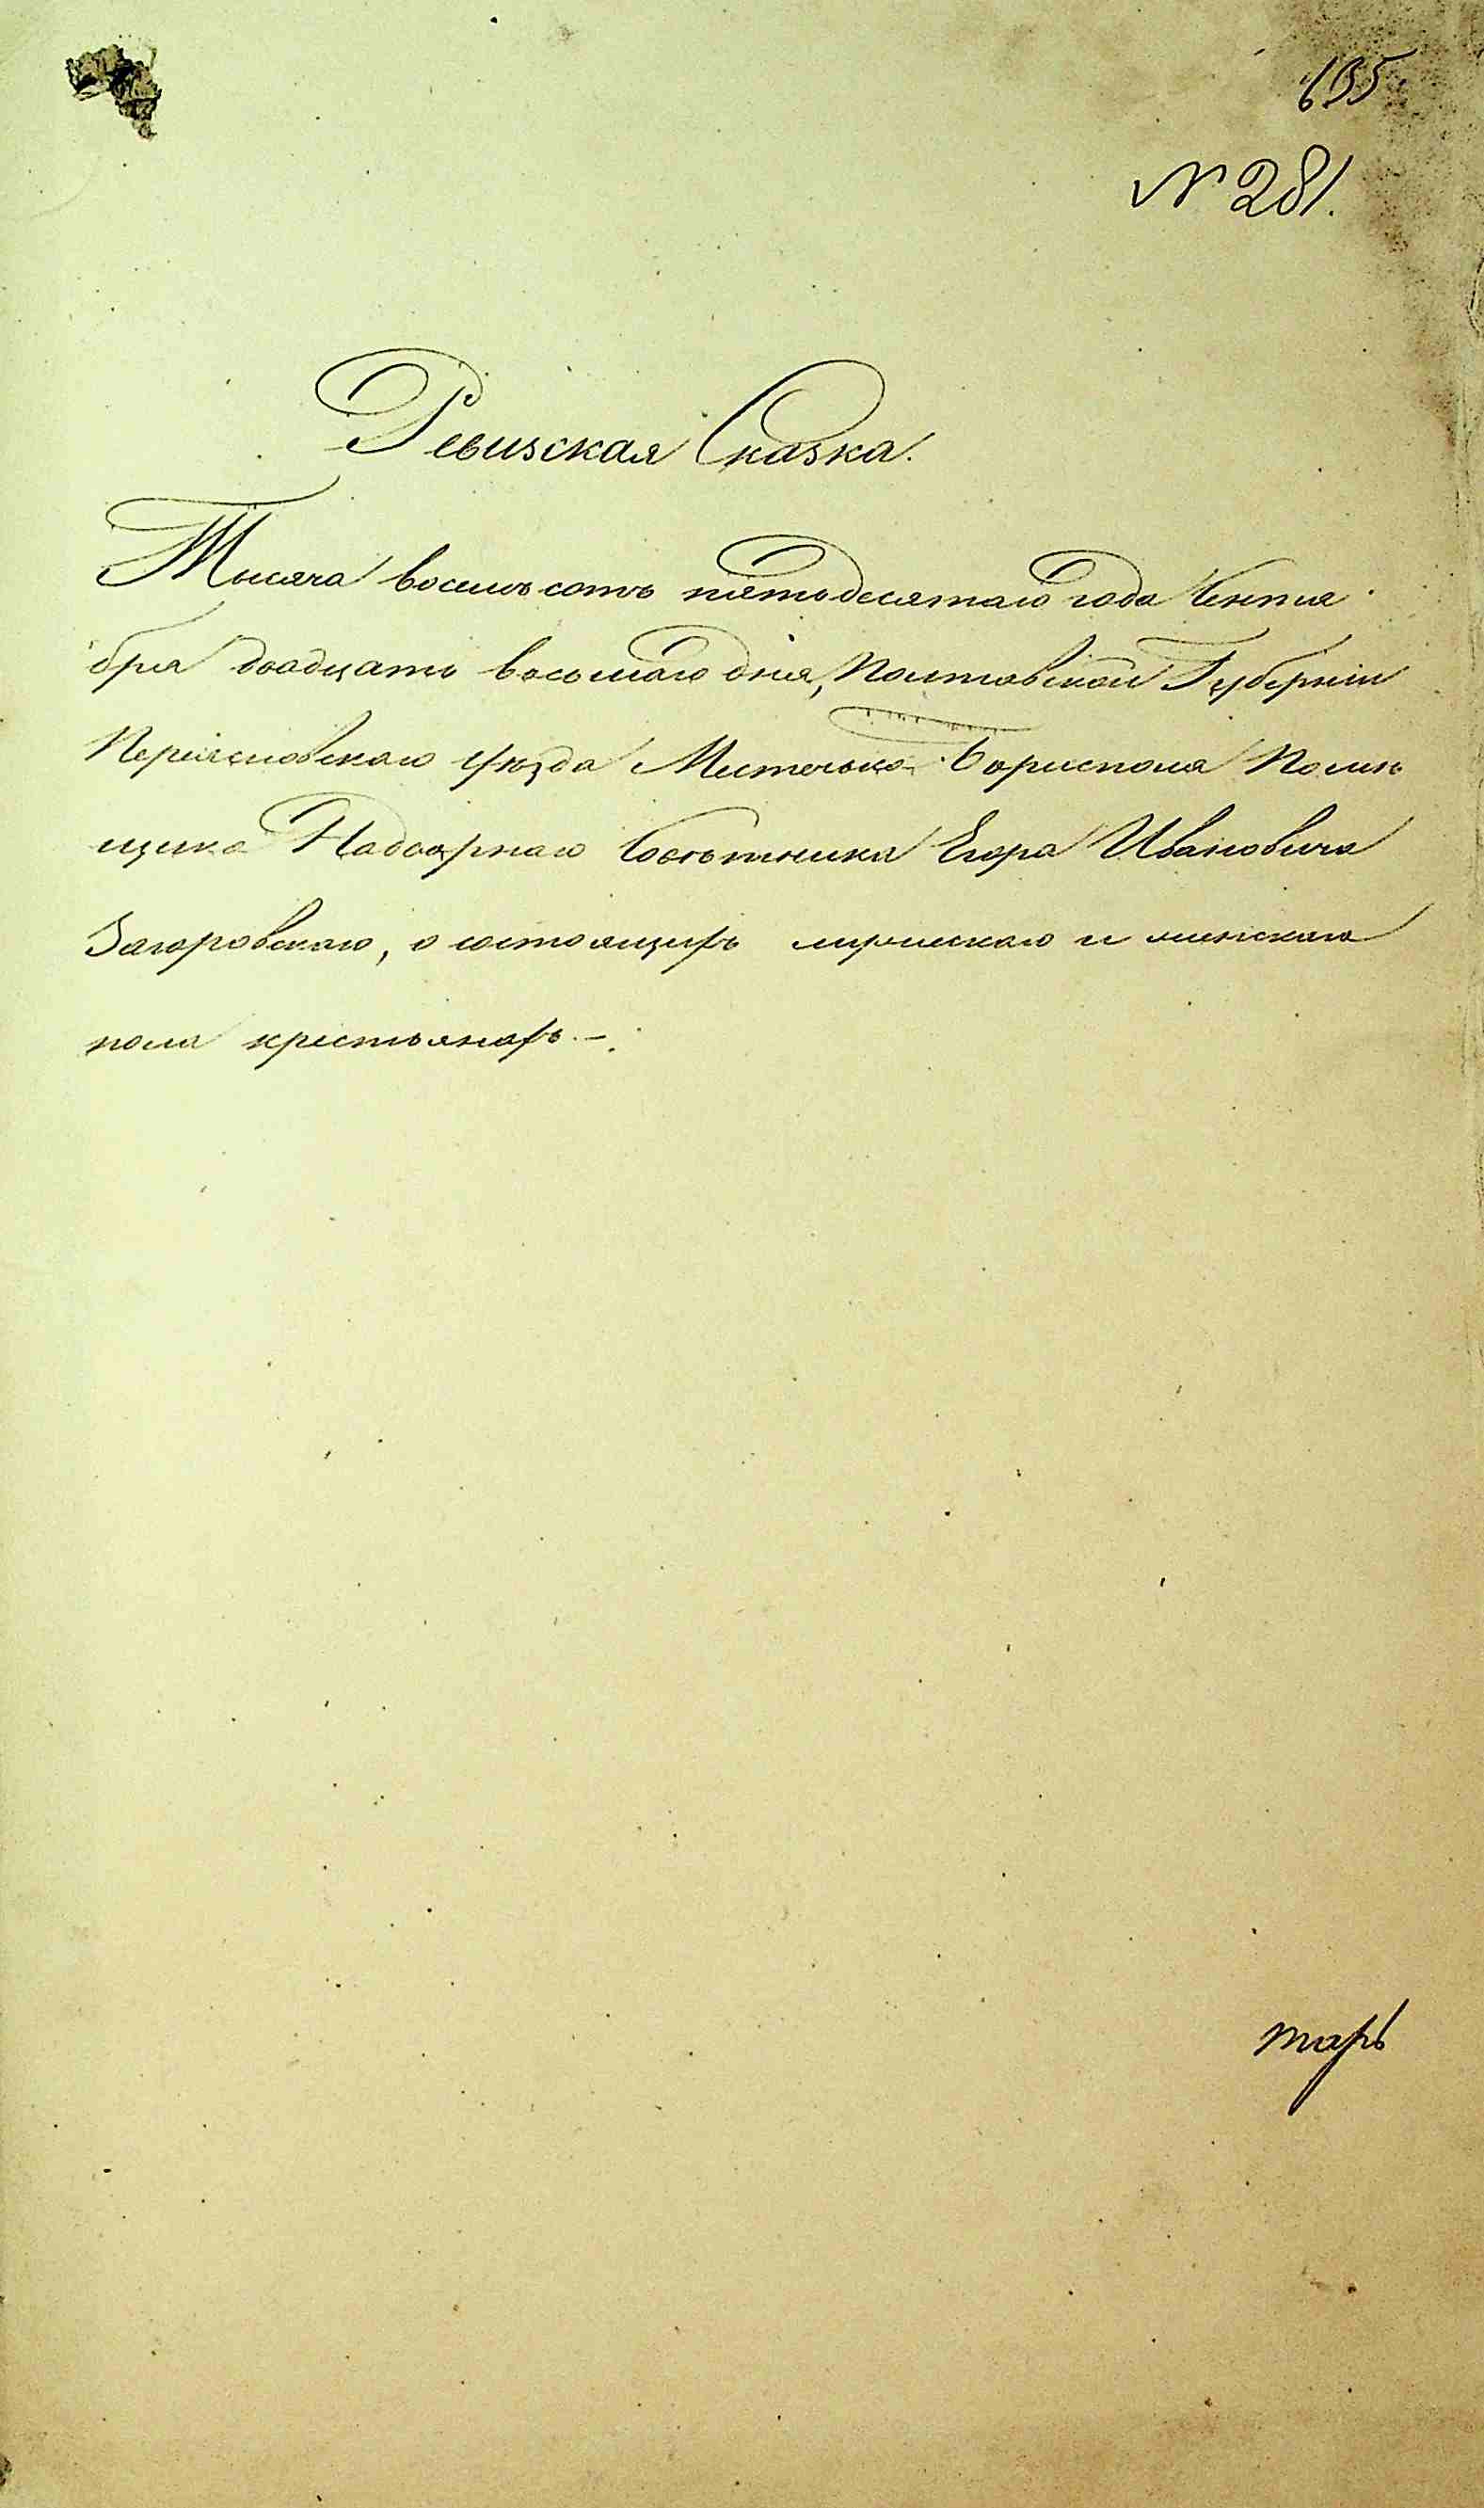 635
№ 281.
Ревизская Сказка.
Тысяча восемь сотъ пятьдесятаго года Сентя
бря двадцать восьмаго дня, Полтавской Губерніи
Переясловскаго уѣзда Местечька Борисполя Помѣ
щика Надворнаго Совѣтника Егора Ивановича
Загоровскаго, о состоящихъ мужескаго и женскаго
пола крестьянахъ.